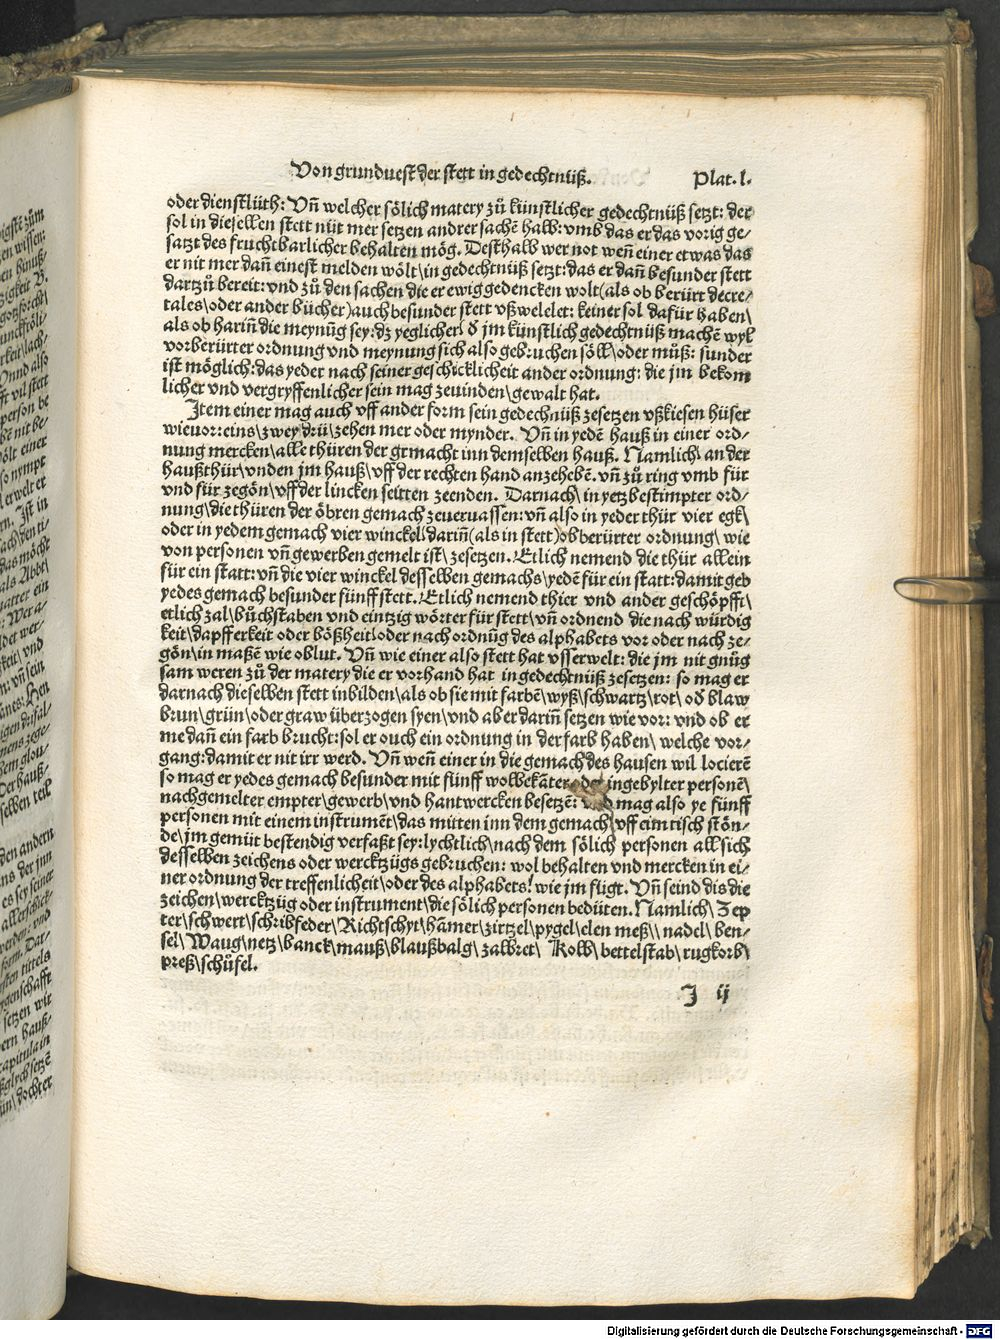 Von grunduest der stett in gedechtnüß. Plat. l.
oder dienstlüth: Vñ welcher sölich matery zů künstlicher gedechtnüß setzt: der
sol in dieselben stett nüt mer setzen andrer sachẽ halb: vmb das er das vorig ge⸗
satzt des fruchtbarlicher behalten mög. Desthalb wer not weñ einer etwas das
er nit mer dañ einest melden wölt\ in gedechtnüß setzt: das er dañ besunder stett
dartzů bereit: vnd zů den sachen die er ewig gedencken wolt (als ob berürt decre⸗
tales\ oder ander bücher) auch besunder stett vßwelelet: keiner sol dafür haben\
als ob hariñ die meynũg sey: dz yeglicher\ d̕ jm künstlich gedechtnüß machẽ wyl
vorberürter ordnung vnd meynung sich also gebruchen söll\ oder müß: sunder
ist möglich: das yeder nach seiner geschicklicheit ander ordnung: die jm bekom
licher vnd vergryffenlicher sein mag zeuinden\ gewalt hat.
Item einer mag auch vff ander form sein gedechnüß zesetzen vßkiesen hüser
wieuor: eins\ zwey drü\ zehen mer oder mynder. Vñ in yedẽ hauß in einer ord⸗
nung mercken\ alle thüren der grmacht inn demselben hauß. Namlich\ an der
haußthür\ vnden jm hauß\ vff der rechten hand anzehebẽ. vñ zů ring vmb für
vnd für zegön\ vff der lincken seitten zeenden. Darnach\ in yetzbestimpter ord⸗
nung\ die thüren der öbren gemach zeueruassen: vñ also in yeder thür vier egk\
oder in yedem gemach vier winckel\ dariñ (als in stett) ob berürter ordnung\ wie
von personen vñ gewerben gemelt ist\ zesetzen. Etlich nemend die thür allein
für ein statt: vñ die vier winckel desselben gemachs\ yedẽ für ein statt: damit geb
yedes gemach besunder fünff stett. Etlich nemend thier vnd ander geschöpfft\
etlich zal\ bůchstaben vnd eintzig wörter für stett\ vñ ordnend die nach würdig
keit\ dapfferkeit oder bößheit\ oder nach ordnũg des alphabets vor oder nach ze⸗
gön\ in maßẽ wie oblut. Vñ wie einer also stett hat vsserwelt: die jm nit gnůg
sam weren zů der matery die er vorhand hat in gedechtnüß zesetzen: so mag er
darnach dieselben stett inbilden\ als ob sie mit farbẽ\ wyß\ schwartz\ rot\ od̕ blaw
brun\ grün\ oder graw überzogen syen\ vnd aber dariñ setzen wie vor: vnd ob er
me dañ ein farb brucht: sol er ouch ein ordnung in der farb haben\ welche vor⸗
gang: damit er nit irr werd. Vñ weñ einer in die gemach des hausen wil locierẽ
so mag er yedes gemach besunder mit fünff wolbekãter oder ingebylter personẽ\
nachgemelter empter\ gewerb\ vnd hantwercken besetzẽ: mag also ye fünff
personen mit einem instrumẽt\ das mitten inn dem gemach\ vff eim tisch stön⸗
de\ jm gemüt bestendig verfaßt sey: lychtlich\ nach dem sölich personen all sich
desselben zeichens oder wercktzügs gebruchen: wol behalten vnd mercken in ei⸗
ner ordnung der treffenlicheit\ oder des alphabets! wie jm fügt. Vñ seind dis die
zeichen\ wercktzüg oder instrument\ die sölich personen bedüten. Namlich\ Zep
ter\ schwert\ schribfeder\ Richtschyt\ hãmer\ zirtzel\ pygel\ elen meß\\ nadel\ ben⸗
sel\ Waug\ netz\ banck\ mauß\ blaußbalg\ zalbret\ Kolb\ bettelstab\ rugkorb\
preß\ schüfel.
J ij
Digitalisierung gefördert durch die Deutsche Forschungsgemeinschaft - DFG